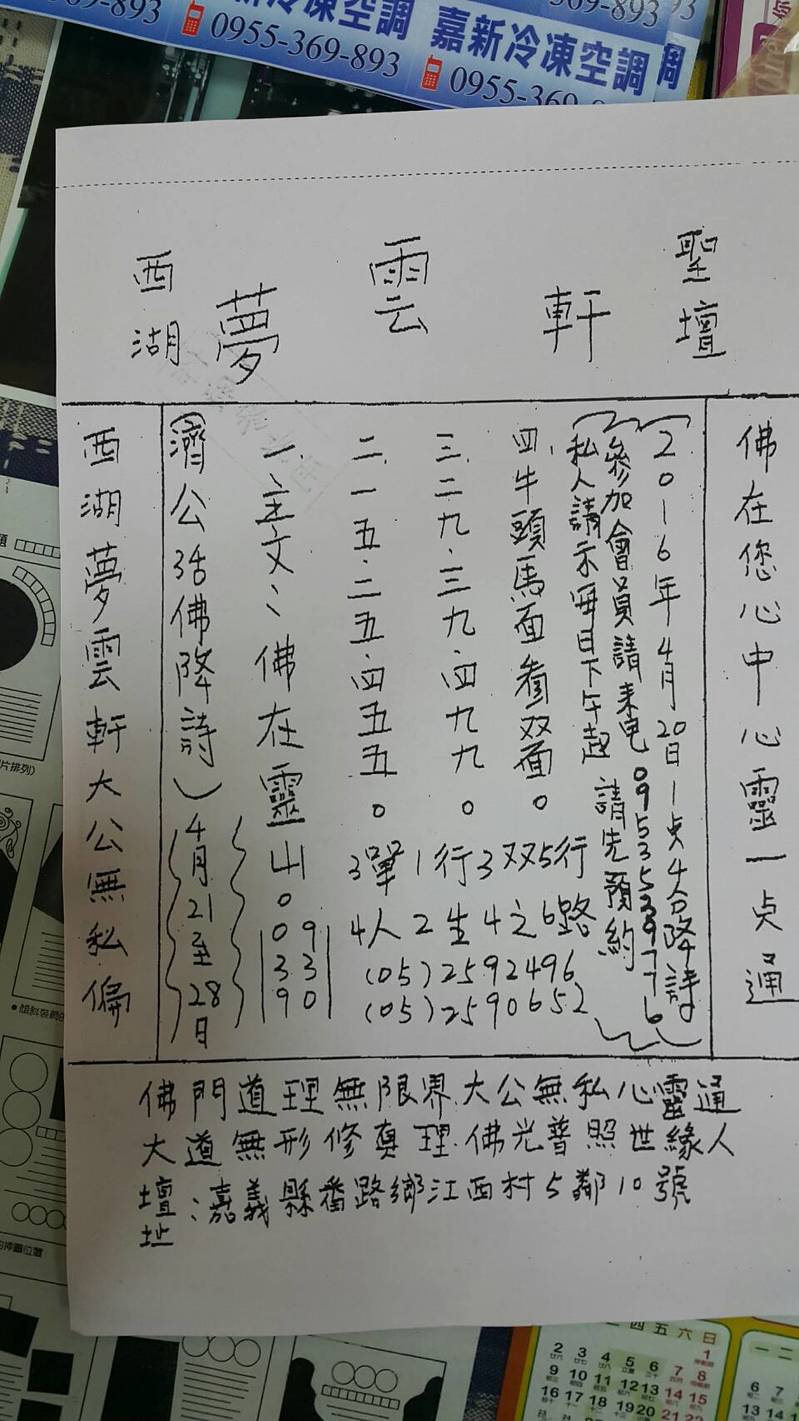 893
嘉新冷凍空調
0955-369-893
0955-369-8
369-893
西湖 夢雲軒 聖壇
佛在您心中心靈一点通
2016年4月20日1点4分降詩
參加會員請來电0953539776
私人請示每日下午起 請先預約
四.牛頭馬面看双面。
三.二九.三九.四九九。
二.一五.二五.四五五。
一.主文:佛在靈山。
09
33
90
3單1行3双5行
4人2生4之6路
(05)2592496
(05)2590652
(濟公活佛降詩)
4月21至28日
西湖夢雲軒大公無私偏
佛門道理無限界.大公無私心靈通
大道無形修真理.佛光普照世緣人
壇址:嘉義縣番路鄉江西村5鄰10號
片排列)
四五六日
1
2 3 4 5 6 7 8
9 10 11 12 13 14 15
16 17 18 19 20 21 22
一二
6 7
13 14